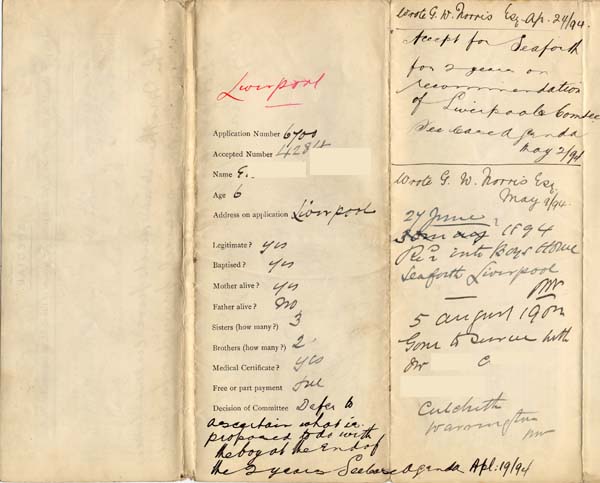 Liverpool
Application Number 6700
Accepted Number 4284
Name E.
Age 6
Address on application Liverpool
Legitimate? yes
Baptised? yes
Mother alive? yes
Father alive? No
Sisters (how many?) 3
Brothers (how many?) 2
Medical Certificate? yes
Free or part payment free
Decision of Committee Defer to
ascertain what is
proposed to do with
the boy at the End of
the 2 years See case agenda Apl. 19/94
Wrote G. W. Norris Esq. Ap. 24/94.
Accept for Seaforth
for 2 years on
recommendation
of Liverpool
See case Agenda
May 2/94
Wrote G. W. Norris Esq.
May /94.
27 June
1894
Rec'd into Boys Home
Seaforth Liverpool
5 August 190
Gone to Service with
C.
Culcheth
Warrington